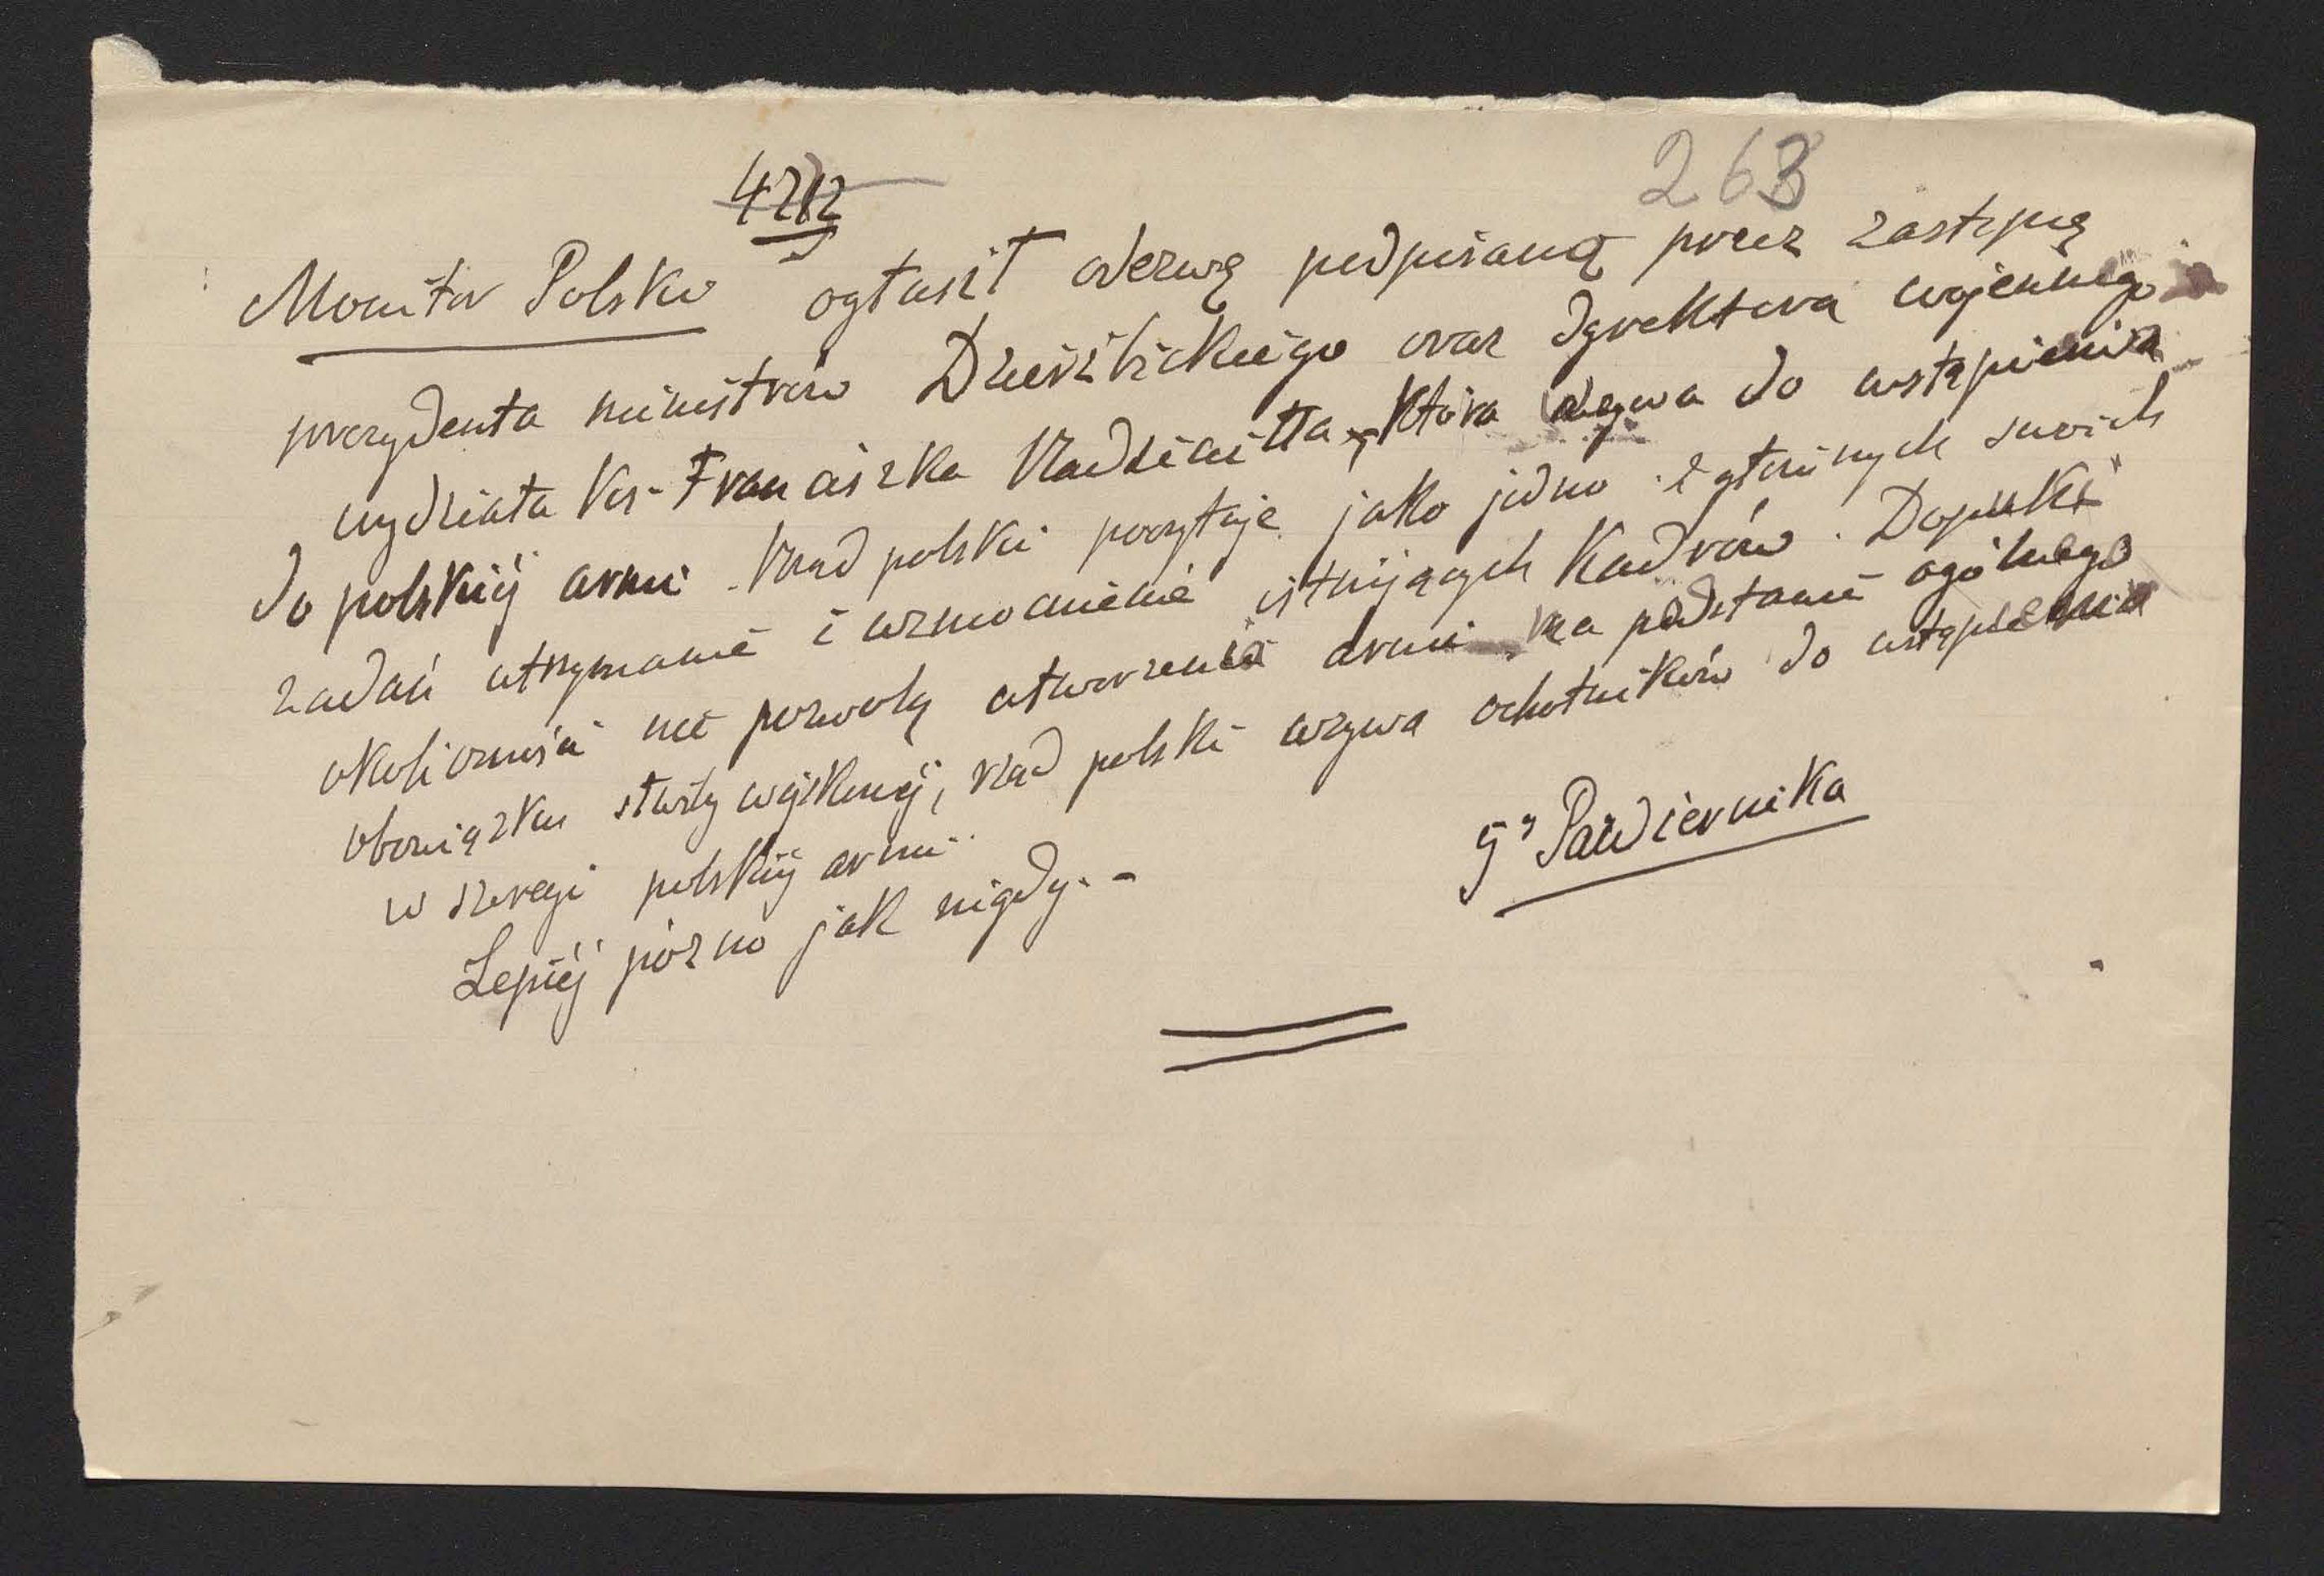 4212
263
Monitor Polski ogłasił odezwę podpisaną przez zastępcę
prezydenta ministrów Dzierżbickiego oraz dyrektora wojennego
wydziała Ks. Franciszka Radziwiłła, która wzywa do wstąpienia
do polskiéj armii. Rząd polski poczytaje jako jedno z głównych swoich
zadań utrzymanie i wzmocnienie istniejących Kadrów. Dopuki
okoliczności nie pozwolą utworzenia armii na podstawie ogólnego
obowiązku służby wojskowéj, rząd polski wzywa ochotników do wstąpienia
w szeregi polskiéj armii
5go Października
Lepiéj pózno jak nigdy. -